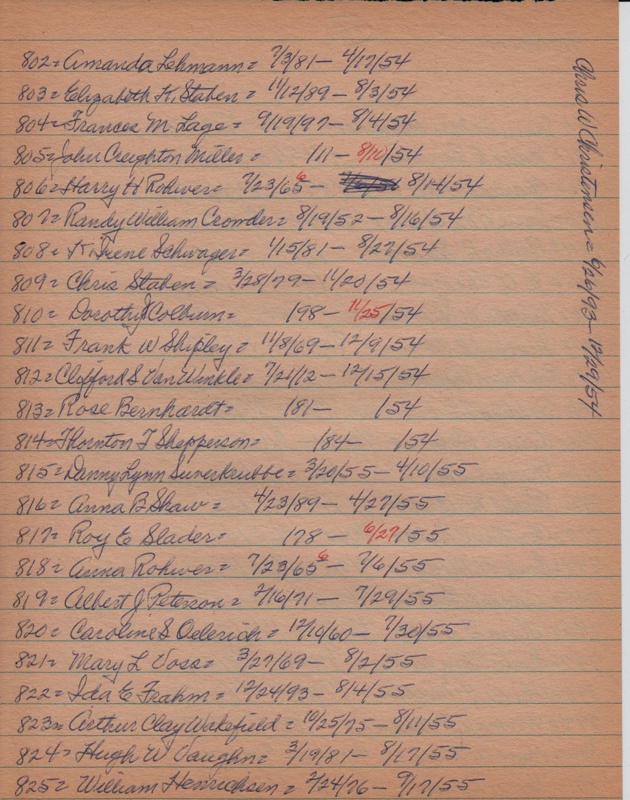 802= Amanda Lehmann= 7/3/81 - 4/17/54
803= Elizabeth K. Staben = 11/12/89 - 8/3/54
804= Frances M Lage = 9/19/97 - 8/4/54
805= John Creighton Miller= /11 - 8/10/54
806= Harry H Rohwer= 7/23/65 6 - 8/14/54
807= Randy William Crowder= 8/19/52 - 8/16/54
808= K. Irene Schwager= 1/15/81 - 8/27/54
809= Chris Staben = 3/28/79 - 11/20/54
810= Dorothy J Colburn= /98 - 11/25/54
811= Frank W Shipley = 11/8/69 - 12/9/54
812= Clifford S Van Winkle= 7/21/12 - 12/15/54
813= Rose Bernhardt= /81 - /54
814= Thornton T Shepperson= /84 - /54
815= Danny Lynn Suverkrubbe = 3/20/55 - 4/10/55
816= Anna B Shaw = 4/23/89 - 4/27/55
817= Roy E Slader= /78 - 6/27/55
818= Anna Rohwer= 7/23/65 6 - 7/6/55
819= Albert J Peterson = 2/16/71 - 7/29/55
820= Caroline S Oelerich= 12/10/60 - 7/30/55
821= Mary L Voss= 3/27/69 - 8/2/55
822= Ida E Frahm = 12/24/93 - 8/4/55
823= Arthur Clay Wakefield = 10/25/75 - 8/11/55
824= Hugh W Vaughn= 3/19/81 - 8/17/55
825= William Henrichsen = 2/24/76 - 9/17/55
Chris W Christensen= 6/26/93 - 12/29/54